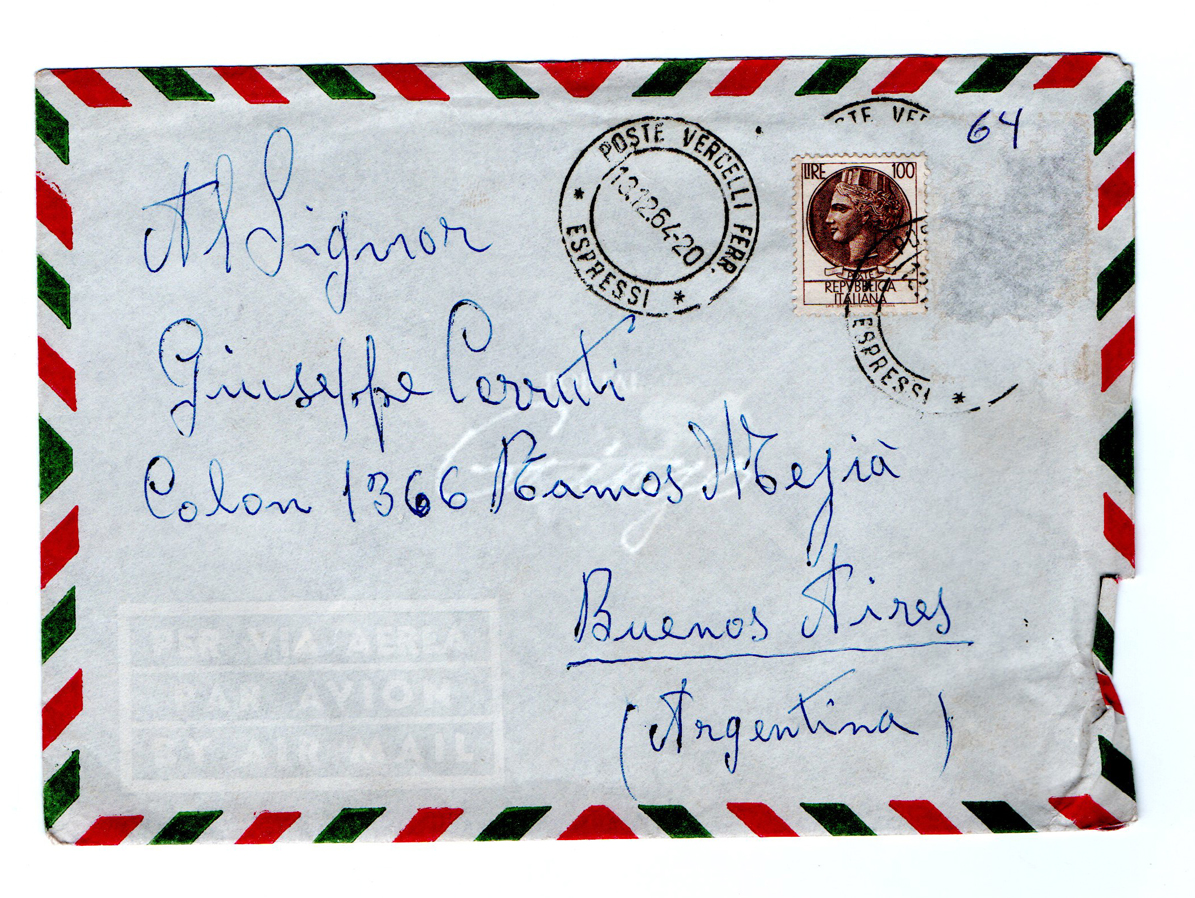 64
POSTE VERCELLI FERR.
10.12.64-20
* ESPRESSI *
STE VER
LIRE 100
POSTE
REPVBBLICA
ITALIANA
ESPRESSI *
Al Signor
Giuseppe Cerruti
Colon 1366 Ramos Mejià
Buenos Aires
(Argentina)
PER VIA AEREA
PAR AVION
BY AIR MAIL